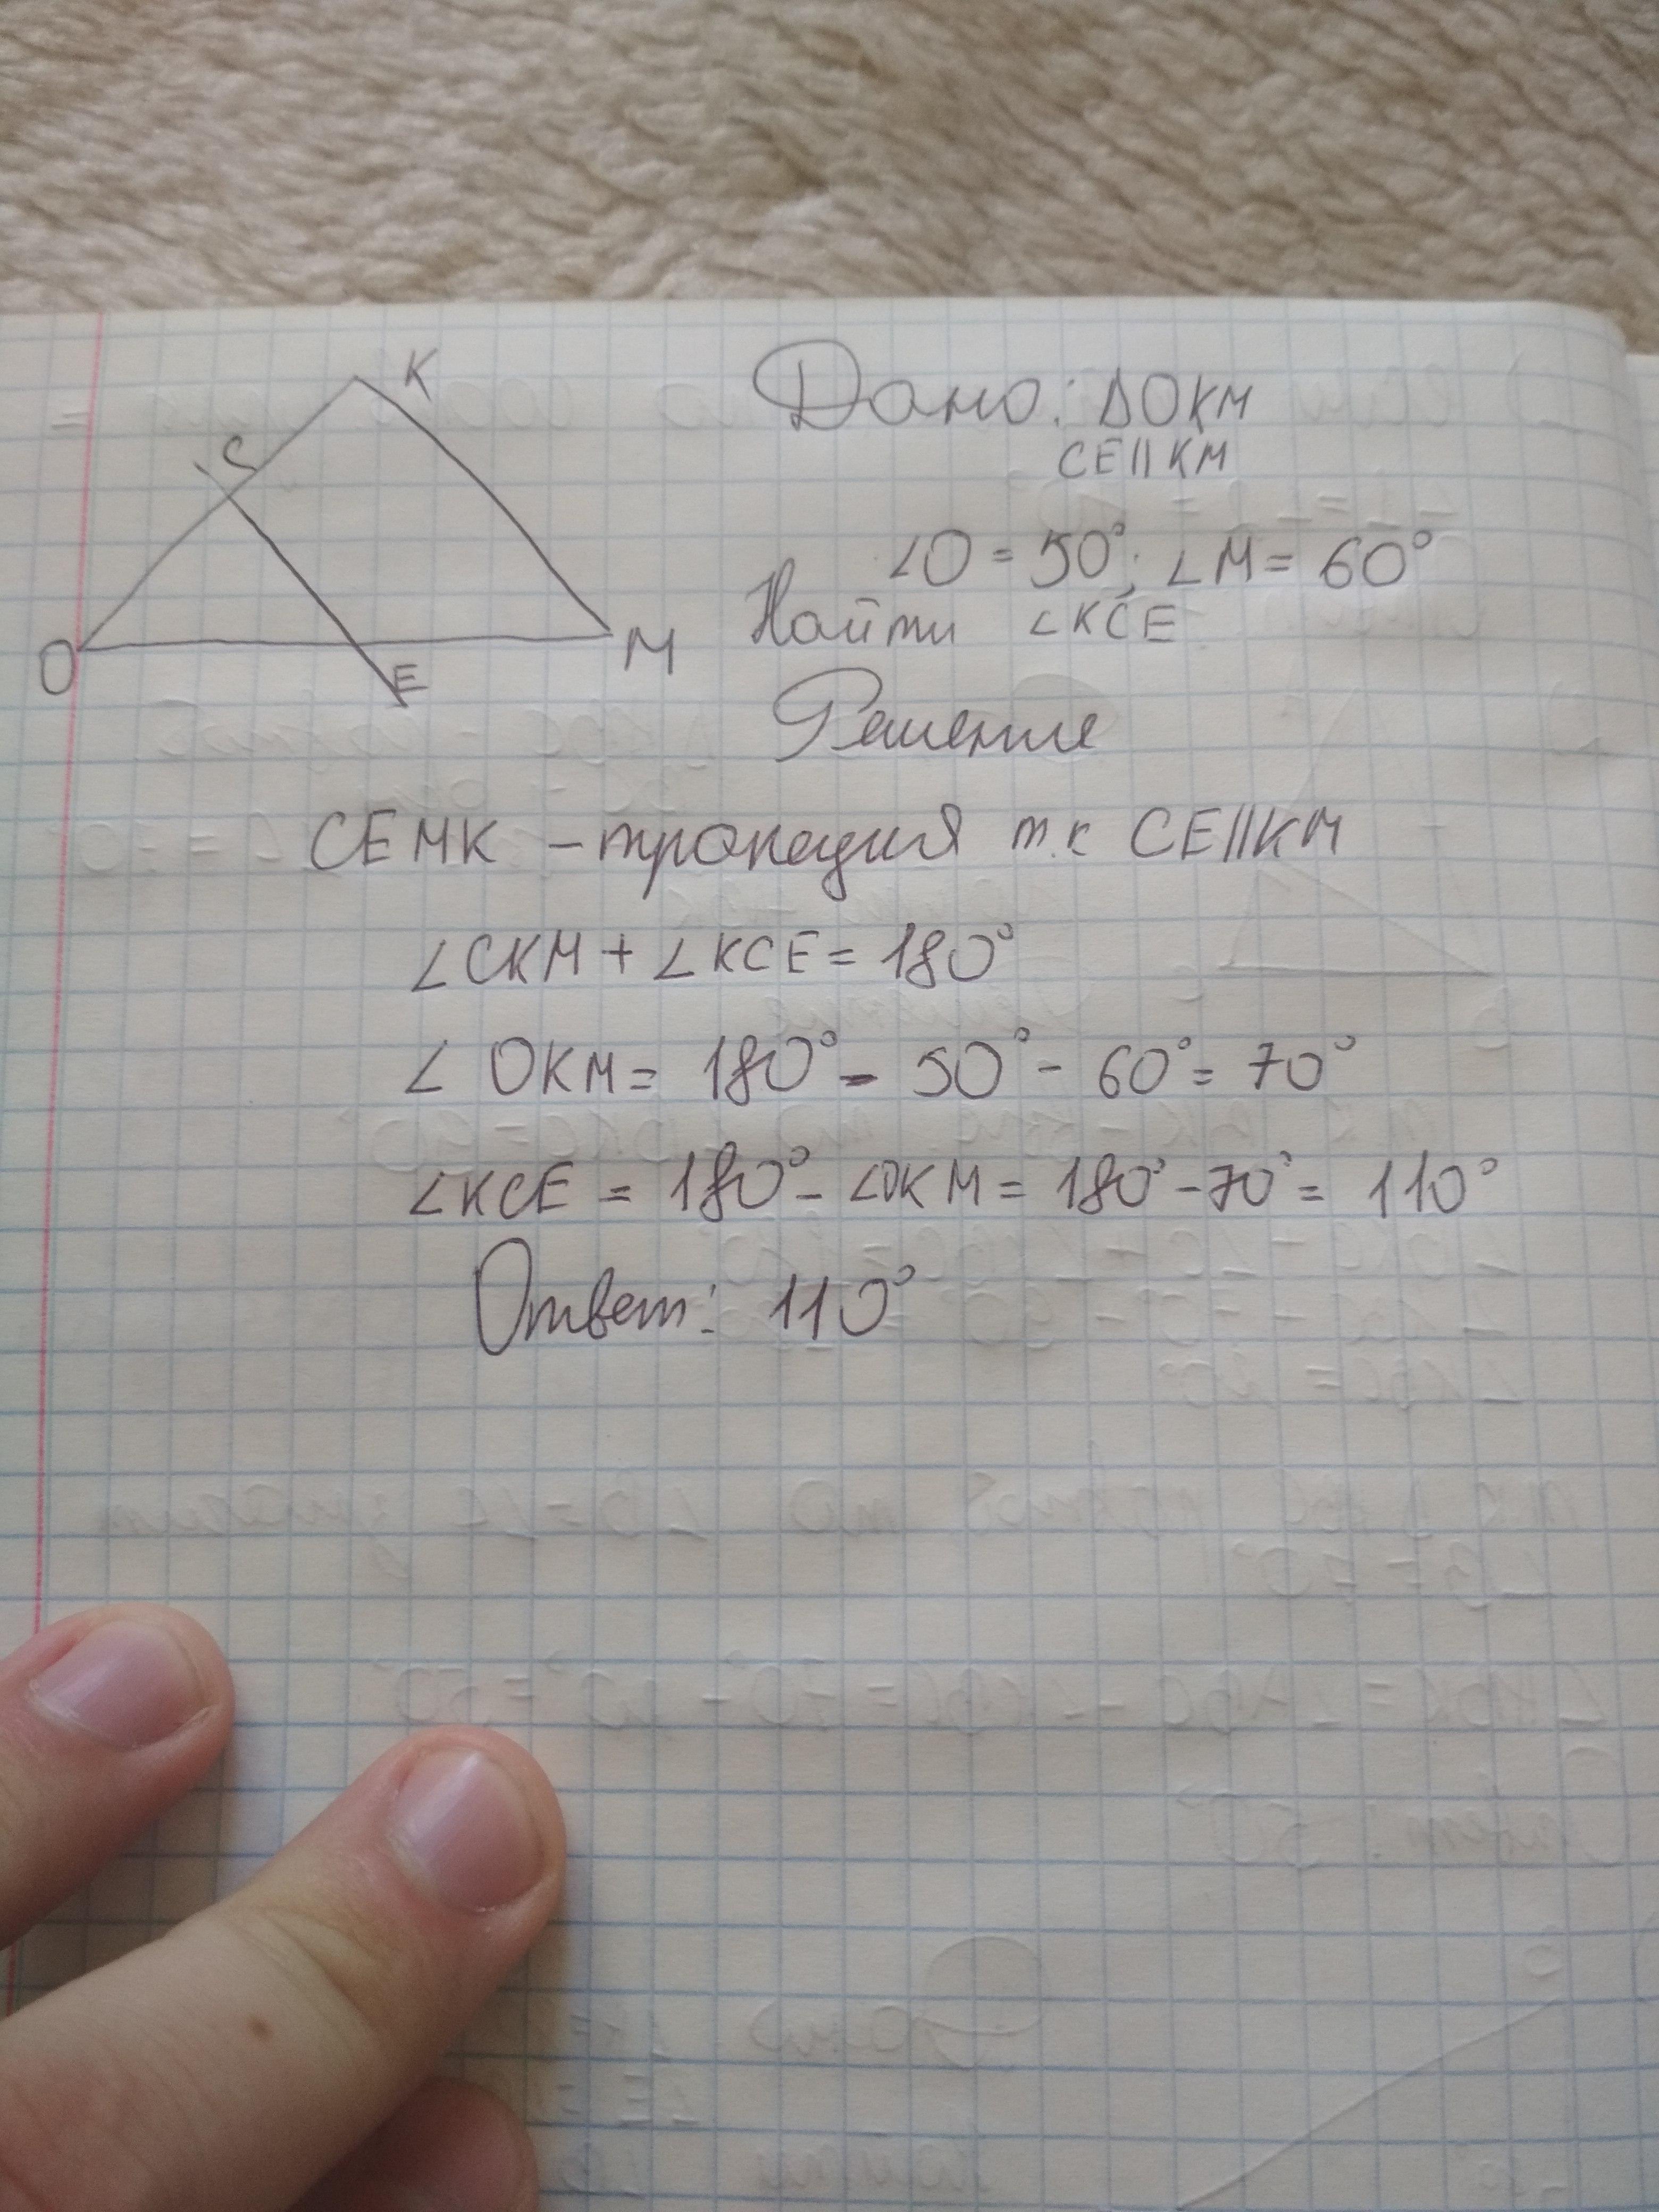 K
C
O
M
E
Дано: ΔOKM
CE||KM
∠O = 50°; ∠M = 60°
Найти ∠KCE
Решение
CEMK – трапеция т.к CE||KM
∠CKM + ∠KCE = 180°
∠ OKM = 180° - 50° - 60° = 70°
∠KCE = 180° - ∠OKM = 180° - 70° = 110°
Ответ: 110°